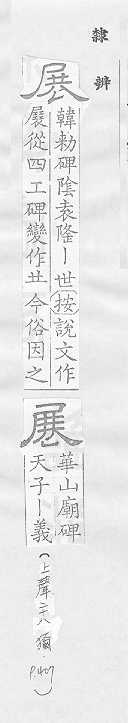 隸辨
展
韓勑碑陰袁隆丨世按說文作
㞡從四工碑變作㠭今俗因之
展
華山廟碑
天子丨義
(上聲二八獮
P.407)